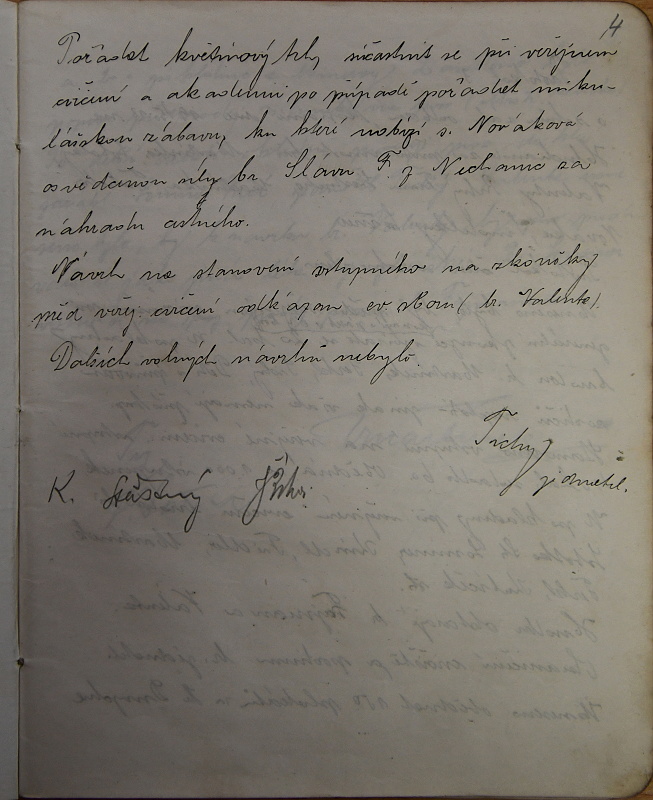 14
Pořádat květinový trh, súčastnit se při veřejném
cvičení a akademii po případě pořádat miku-
lášskou zábavu, ku které nabízí s. Nováková
osvědčenou síly br. Slávu F. z Nechanic za
náhradu cestného.
Návrh na stanovení vstupného na zkoušky
před veřej. cvičení odkázan cv. sboru (br. Valenta).
Dalších volných návrhů nebylo.
Tichý
jednatel.
K. Šťastný